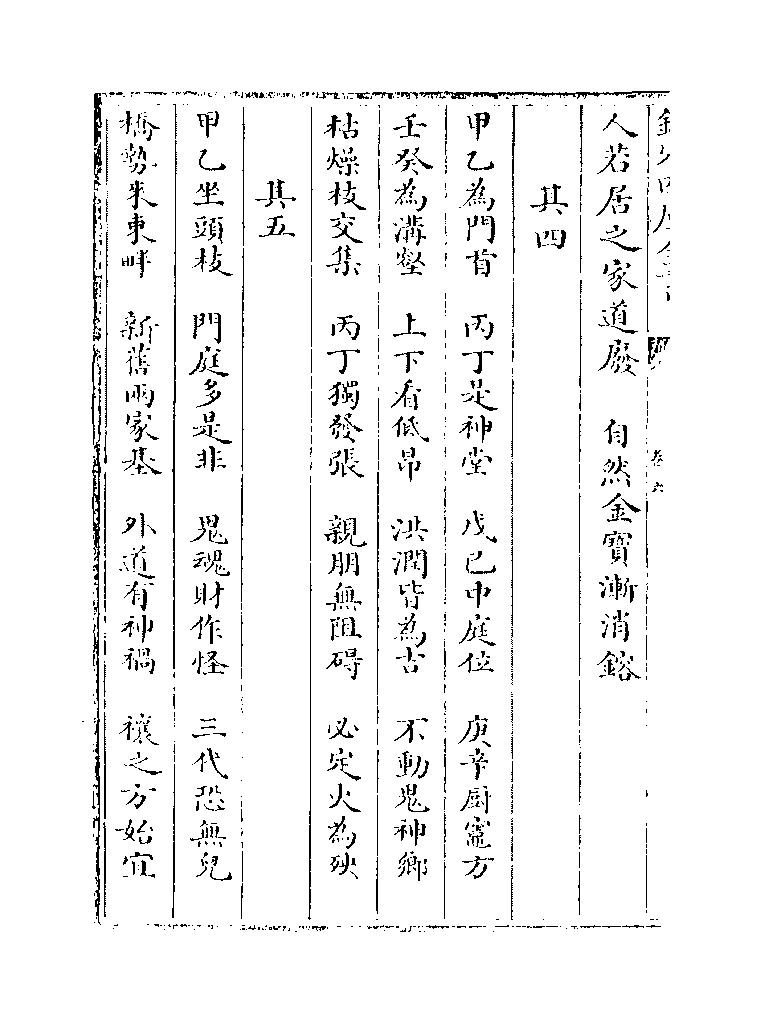 欽定四庫全書 卷六
人若居之家道廢 自然金寶漸消鎔
其四
甲乙為門首 丙丁是神堂 戊己中庭位 庚辛厨竈方
壬癸為溝壑 上下看低昂 洪潤皆為吉 不動鬼神鄉
枯燥枝交集 丙丁獨發張 親朋無阻碍 必定火為殃
其五
甲乙坐頭枝 門庭多是非 鬼魂財作怪 三代恐無兒
橋勢来東畔 新舊兩家基 外道有神禍 禳之方始宜